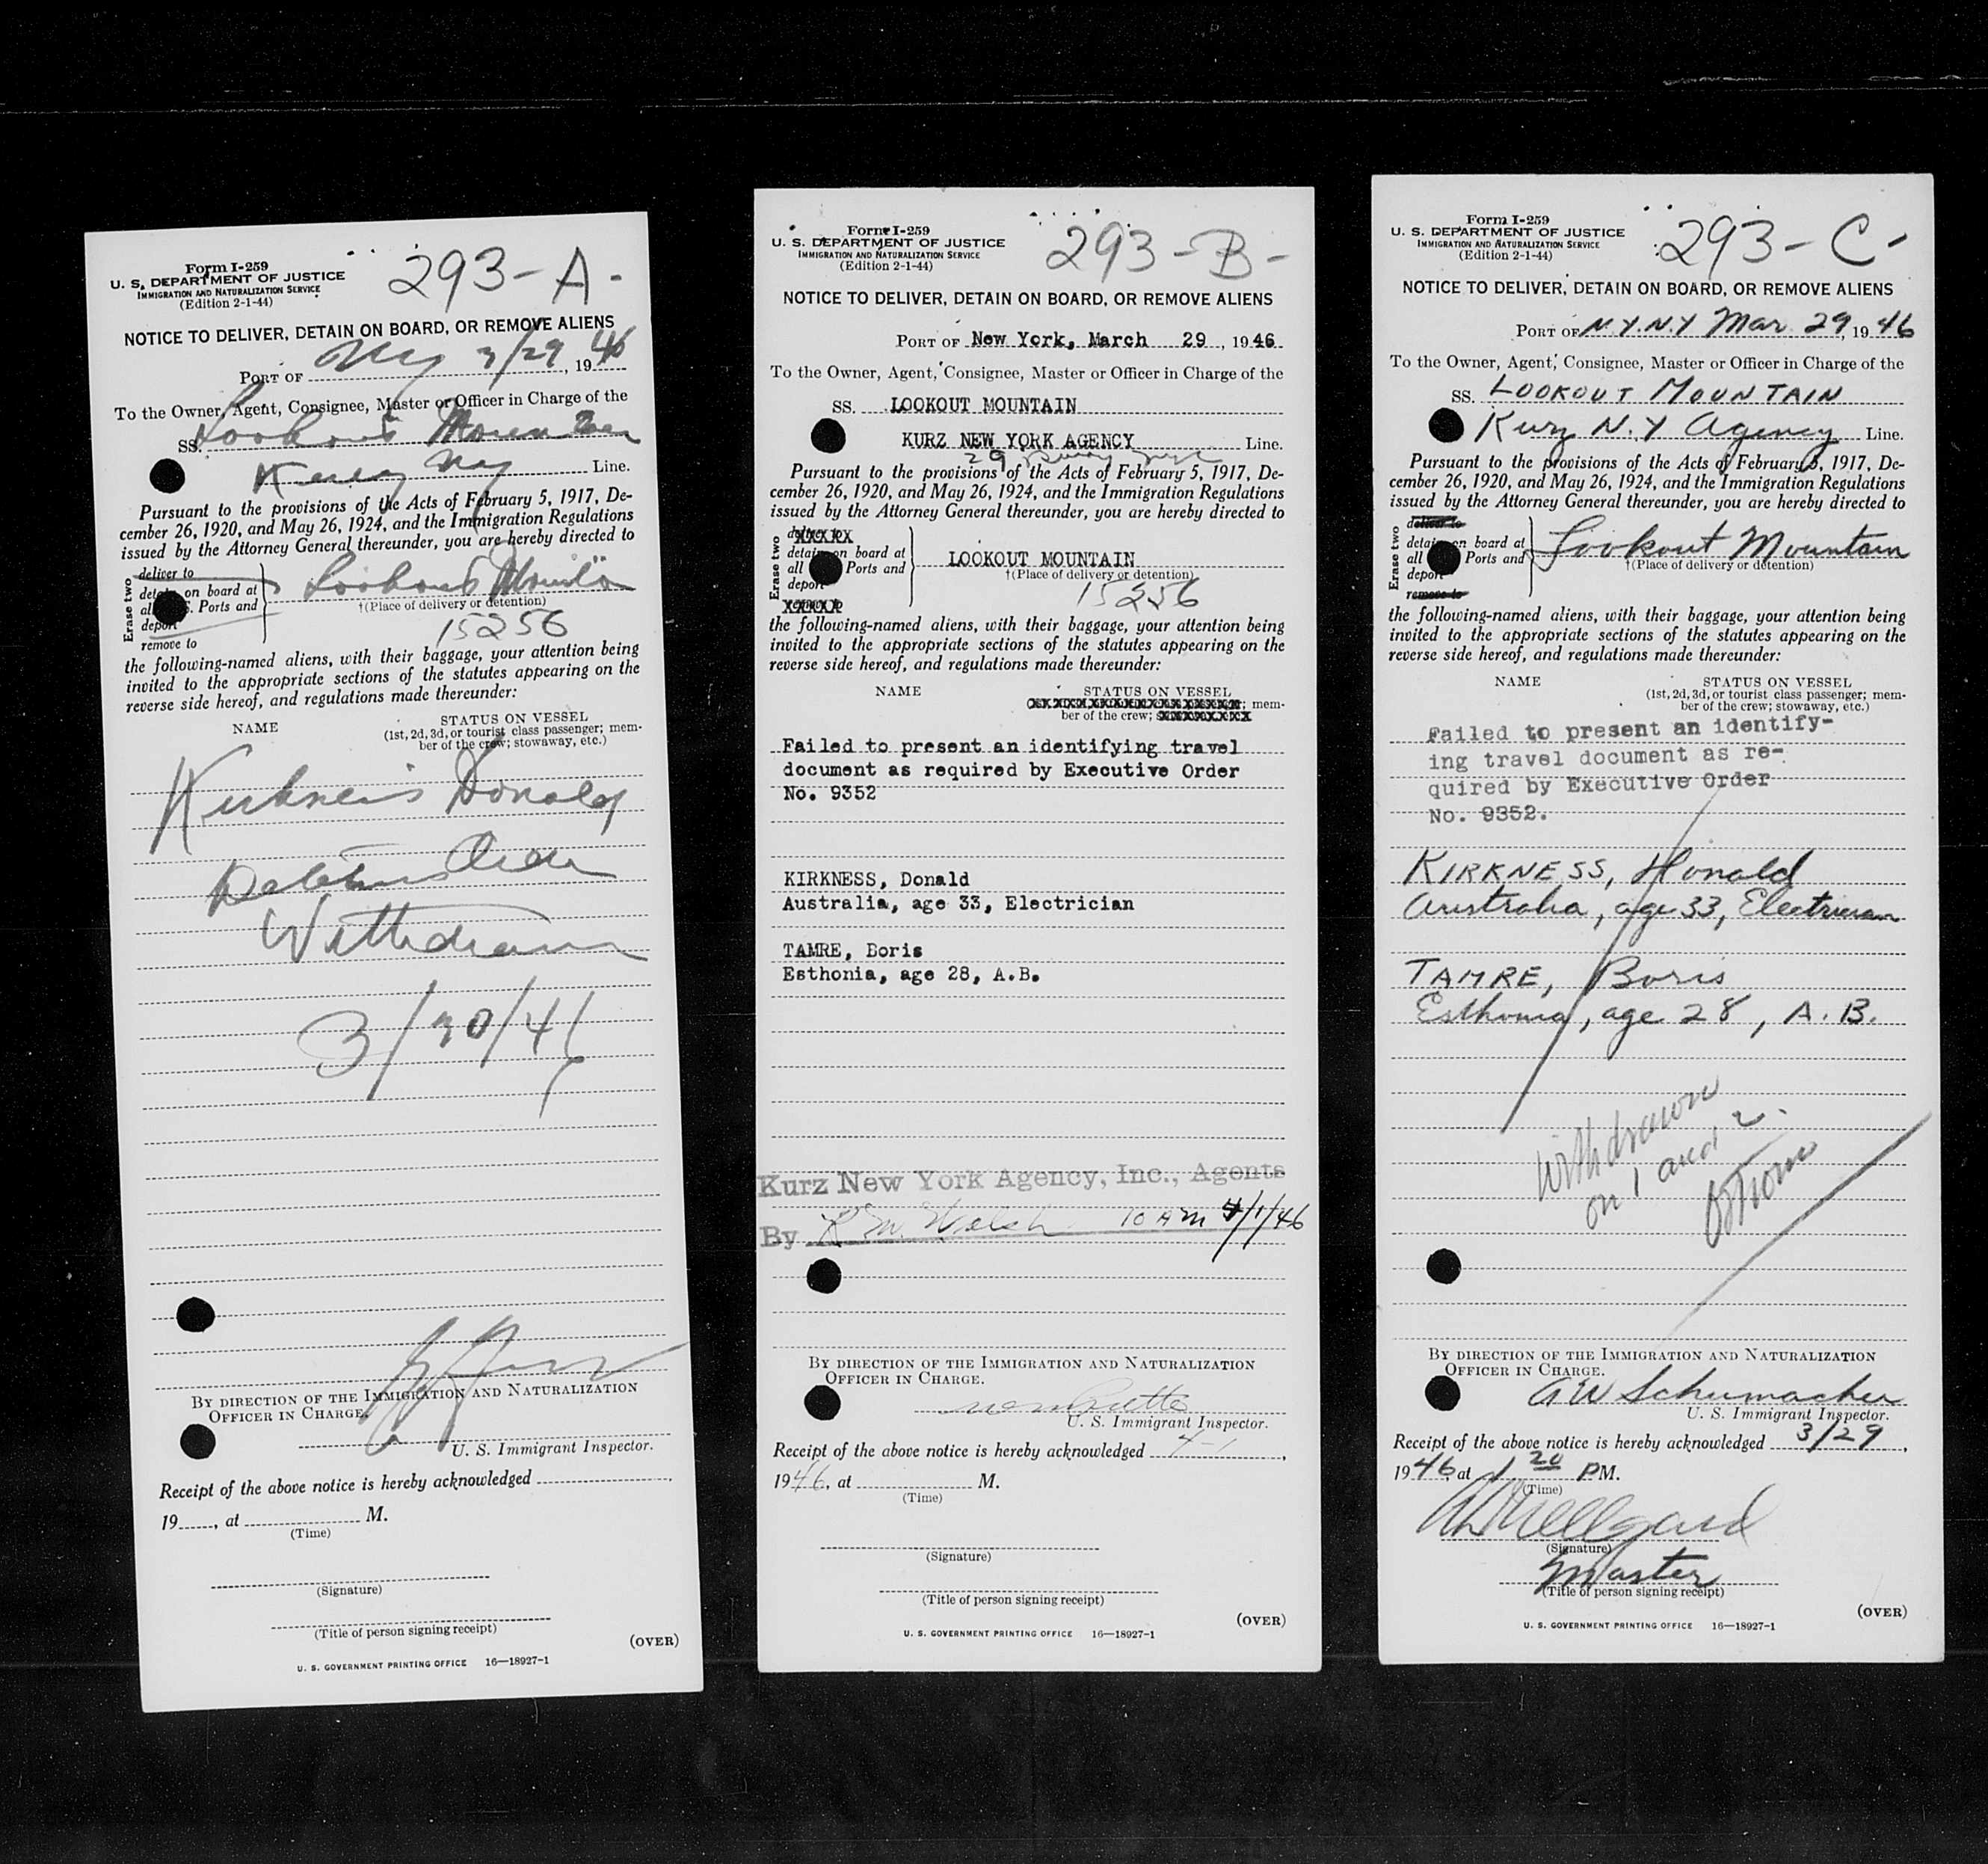 Form I-259
U. S. DEPARTMENT OF JUSTICE
IMMIGRATION AND NATURALIZATION SERVICE
(Edition 2-1-44)
293-A-
NOTICE TO DELIVER, DETAIN ON BOARD, OR REMOVE ALIENS
PORT OF NY 3/29, 1946
To the Owner, Agent, Consignee, Master or Officer in Charge of the
SS. Lookout Mountain
Line.
Pursuant to the provisions of the Acts of February 5, 1917, De-
cember 26, 1920, and May 26, 1924, and the Immigration Regulations
issued by the Attorney General thereunder, you are hereby directed to
Erase two
deliver to
detain on board at
all U.S. Ports and
deport
remove to
Lookout Mountain
†(Place of delivery or detention)
15256
the following-named aliens, with their baggage, your attention being
invited to the appropriate sections of the statutes appearing on the
reverse side hereof, and regulations made thereunder:
NAME
STATUS ON VESSEL
(1st, 2d, 3d, or tourist class passenger; mem-
ber of the crew; stowaway, etc.)
Kirkness Donald
Detention Order
Withdrawn
3/30/46
BY DIRECTION OF THE IMMIGRATION AND NATURALIZATION
OFFICER IN CHARGE.
U. S. Immigrant Inspector.
Receipt of the above notice is hereby acknowledged
19, at M.
(Time)
(Signature)
(Title of person signing receipt)
(OVER)
U. S. GOVERNMENT PRINTING OFFICE 16—18927-1
Form I-259
U. S. DEPARTMENT OF JUSTICE
IMMIGRATION AND NATURALIZATION SERVICE
(Edition 2-1-44)
293-B-
NOTICE TO DELIVER, DETAIN ON BOARD, OR REMOVE ALIENS
PORT OF New York, March 29, 1946
To the Owner, Agent, Consignee, Master or Officer in Charge of the
SS. LOOKOUT MOUNTAIN
KURZ NEW YORK AGENCY Line.
29
Pursuant to the provisions of the Acts of February 5, 1917, De-
cember 26, 1920, and May 26, 1924, and the Immigration Regulations
issued by the Attorney General thereunder, you are hereby directed to
Erase two
detain on board at
all Ports and
deport
LOOKOUT MOUNTAIN
†(Place of delivery or detention)
15256
the following-named aliens, with their baggage, your attention being
invited to the appropriate sections of the statutes appearing on the
reverse side hereof, and regulations made thereunder:
NAME
STATUS ON VESSEL
; mem-
ber of the crew;
Failed to present an identifying travel
document as required by Executive Order
No. 9352
KIRKNESS, Donald
Australia, age 33, Electrician
TAMRE, Boris
Esthonia, age 28, A.B.
Kurz New York Agency, Inc., Agents
By R M. Welsh 10 AM 4/1/46
BY DIRECTION OF THE IMMIGRATION AND NATURALIZATION
OFFICER IN CHARGE.
U. S. Immigrant Inspector.
Receipt of the above notice is hereby acknowledged 4-1,
1946, at M.
(Time)
(Signature)
(Title of person signing receipt)
(OVER)
U. S. GOVERNMENT PRINTING OFFICE 16—18927-1
Form I-259
U. S. DEPARTMENT OF JUSTICE
IMMIGRATION AND NATURALIZATION SERVICE
(Edition 2-1-44)
293-C-
NOTICE TO DELIVER, DETAIN ON BOARD, OR REMOVE ALIENS
PORT OF N.Y. N.Y Mar 29, 1946
To the Owner, Agent, Consignee, Master or Officer in Charge of the
SS. LOOKOUT MOUNTAIN
Kurz N.Y Agency Line.
Pursuant to the provisions of the Acts of February 5, 1917, De-
cember 26, 1920, and May 26, 1924, and the Immigration Regulations
issued by the Attorney General thereunder, you are hereby directed to
Erase two
deliver to
detain on board at
all Ports and
deport
remove to
Lookout Mountain
†(Place of delivery or detention)
the following-named aliens, with their baggage, your attention being
invited to the appropriate sections of the statutes appearing on the
reverse side hereof, and regulations made thereunder:
NAME
STATUS ON VESSEL
(1st, 2d, 3d, or tourist class passenger; mem-
ber of the crew; stowaway, etc.)
Failed to present an identify-
ing travel document as re-
quired by Executive Order
No. 9352.
KIRKNESS, Donald
Australia, age 33, Electrician
TAMRE, Boris
Esthonia, age 28, A.B.
Withdrawn
on 1 and 2.
BY DIRECTION OF THE IMMIGRATION AND NATURALIZATION
OFFICER IN CHARGE.
GW Schumacher
U. S. Immigrant Inspector.
Receipt of the above notice is hereby acknowledged 3/29,
1946, at 1 20 PM.
(Time)
(Signature)
Master
(Title of person signing receipt)
(OVER)
U. S. GOVERNMENT PRINTING OFFICE 16—18927-1